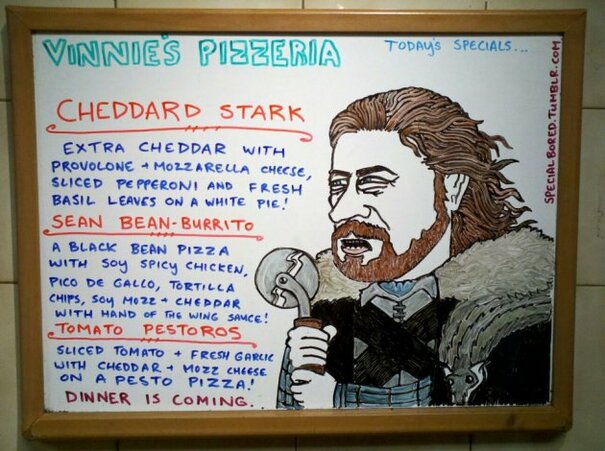 VINNIE'S PIZZERIA
TODAY'S SPECIALS...
CHEDDARD STARK
EXTRA CHEDDAR WITH
PROVOLONE + MOZZARELLA CHEESE,
SLICED PEPPERONI AND FRESH
BASIL LEAVES ON A WHITE PIE!
SEAN BEAN-BURRITO
A BLACK BEAN PIZZA
WITH SOY SPICY CHICKEN,
PICO DE GALLO, TORTILLA
CHIPS, SOY MOZZ + CHEDDAR
WITH HAND OF THE WING SAUCE!
TOMATO PESTOROS
SLICED TOMATO + FRESH GARLIC
WITH CHEDDAR + MOZZ CHEESE
ON A PESTO PIZZA!
DINNER IS COMING.
SPECIALBORED.TUMBLR.COM